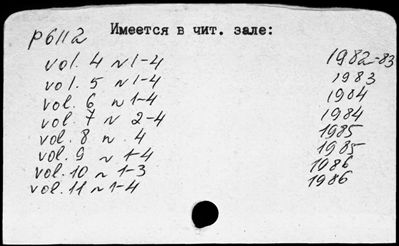 р6112 Имеется в чит. зале:
vol. 4 n 1-4 1982-83
vol. 5 n 1-4 1983
vol. 6 n 1-4 1984
vol. 7 n 2-4 1984
vol. 8 n. 4 1985
vol. 9 n 1-4 1985
vol. 10 n 1-3 1986
vol. 11 n 1-4 1986